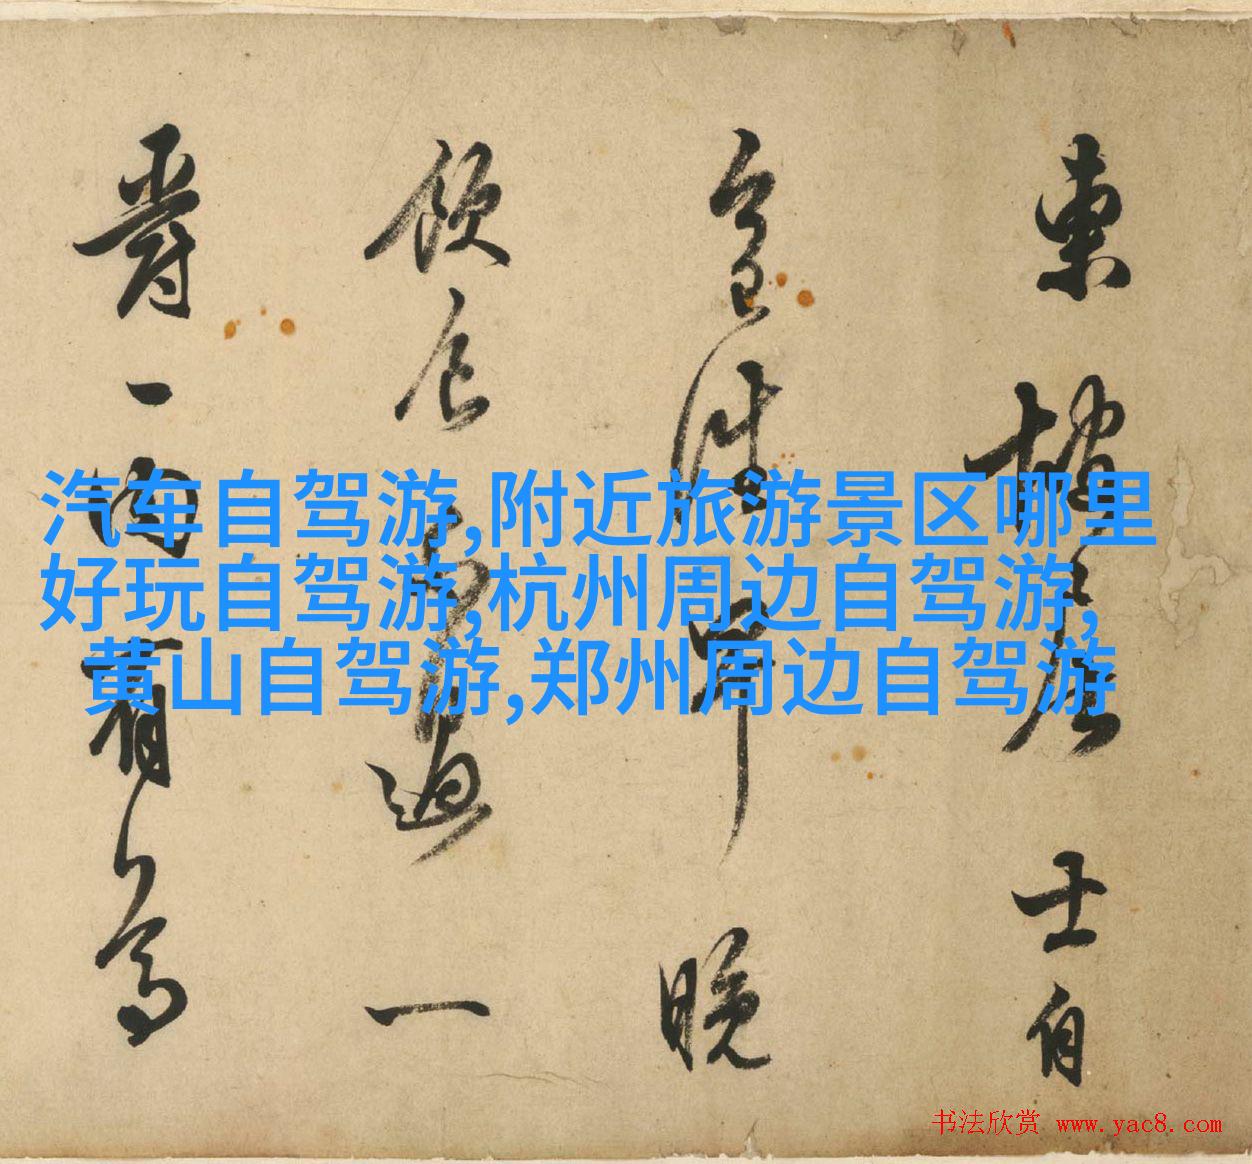 汽车自驾游,附近旅游景区哪里
好玩自驾游,杭州周边自驾游,
黄山自驾游,郑州周边自驾游
士自
晚
飲食不過一
爵一肉有
书法欣赏 www.yac8.com